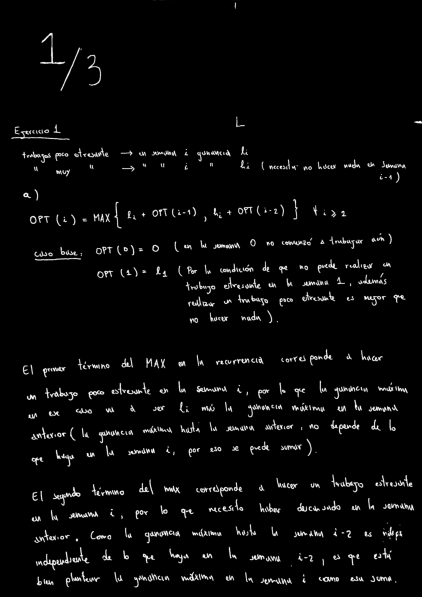 1/3
L
Ejercicio 1
trabajos poco estresante → en semana i ganancia li
" muy " → " " i " hi (necesita no hacer nada en semana
i-1)
a)
OPT (i) = MAX { li + OPT (i-1) , hi + OPT (i-2) } ∀ i ≥ 2
caso base: OPT (0) = 0 ( en la semana 0 no comenzó a trabajar aún )
OPT (1) = l1 ( Por la condición de que no puede realizar un
trabajo estresante en la semana 1, además
realizar un trabajo poco estresante es mejor que
no hacer nada ).
El primer término del MAX en la recurrencia corresponde a hacer
un trabajo poco estresante en la semana i, por lo que la ganancia máxima
en ese caso va a ser li más la ganancia máxima en la semana
anterior ( la ganancia máxima hasta la semana anterior, no depende de lo
que haga en la semana i, por eso se puede sumar ).
El segundo término del max corresponde a hacer un trabajo estresante
en la semana i, por lo que necesito haber descansado en la semana
anterior. Como la ganancia máxima hasta la semana i-2 es
independiente de lo que haga en la semana i-2, es que está
bien plantear la ganancia máxima en la semana i como esa suma.